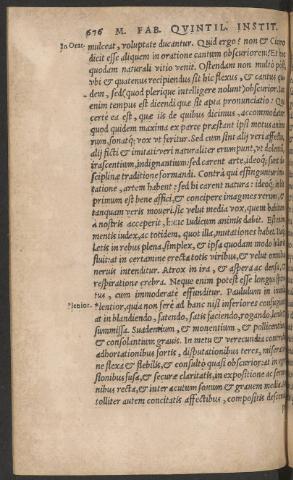 676 M. FAB. QVINTIL. INSTIT.
In Orat. mulceat, voluptate ducantur. Quid ergo? non & Cicero
dicit esse aliquem in oratione cantum obscuriorem? Et hoc
quodam naturali vitio venit. Ostendam non multò pòst,
vbi & quatenus recipiendus sit hic flexus, & cantus
dem, sed, quod plerique intelligere nolunt, obscurior. Iam
enim tempus est dicendi quæ sit apta pronuntiatio: Quæ
certè ea est, quæ iis de quibus dicimus, accommodatur:
quod quidem maxima ex parte præstant ipsi motus animo
rum, sonatq; vox vt feritur. Sed cum sint alij veri affectus,
alij ficti & imitati: veri naturaliter erumpunt, vt dolentium,
irascentium, indignantium: sed carent arte, ideoq; sunt
sciplina traditione formandi. Contrà qui effinguntur imi
tatione, artem habent: sed hi carent natura: ideoq; in his
primum est bene affici, & concipere imagines rerum, &
tanquam veris moueri. sic velut media vox, quem habitum
à nostris acceperit, hunc iudicum animis dabit. Est enim
mentis index, ac totidem, quot illa, mutationes habet.
Lætis in rebus plena, simplex, & ipsa quodam modo hilaris
fluit: at in certamine erecta totis viribus, & velut omnibus
neruis intenditur. Atrox in ira, & aspera ac densa, &
respiratione crebra. Neque enim potest esse longus
tus, cum immoderatè effunditur. Paululum in
*lenior. *lentior, quia non ferè ad hanc nisi inferiores
at in blandiendo, fatendo, satisfaciendo, rogando, lenis
summissa. Suadentium, & monentium, & pollicentium
& consolantium grauis. In metu & verecundia contracta,
adhortationibus fortis, disputationibus teres, miseratione
flexa & flebilis, & consultò quasi obscurior: at in
sionibus fusa, & securæ claritatis, in expositione ac sermo
nibus recta, & inter acutum sonum & grauem media.
tollitur autem concitatis affectibus, compositis descendit